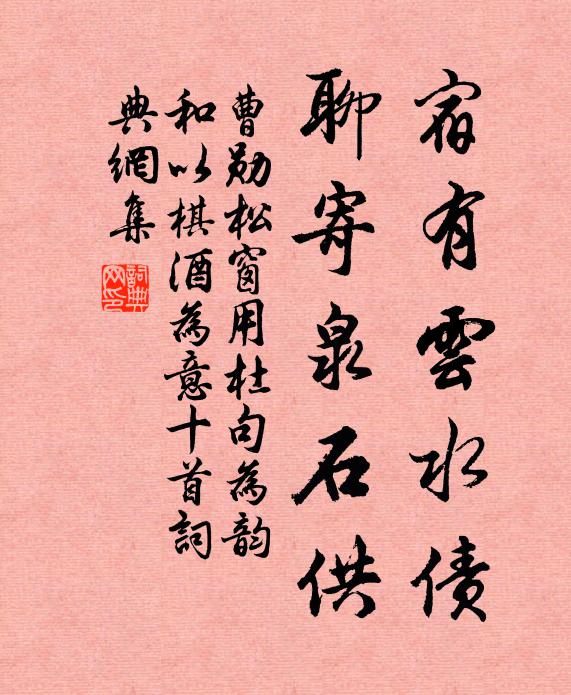 宿有雲水債
聊寄泉石供
曹勛松窗用杜句為韵
和以棋酒為意十首詞
典網集
詞典網印